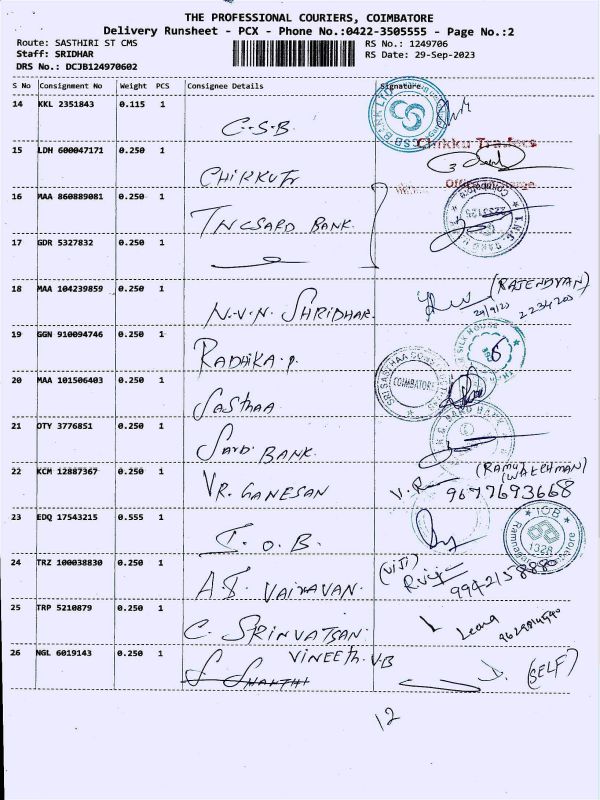 THE PROFESSIONAL COURIERS, COIMBATORE
Delivery Runsheet - PCX - Phone No.:0422-3505555 - Page No.:2
Route: SASTHIRI ST CMS RS No.: 1249706
Staff: SRIDHAR RS Date: 29-Sep-2023
DRS No.: DCJB124970602
S No Consignment No Weight PCS Consignee Details Signature
14 KKL 2351843 0.115 1 C.S.B.
15 LDH 600047171 0.250 1 CHIKKU Tr Chikku
16 MAA 860889081 0.250 1 TNCSARD BANK.
17 GDR 5327832 0.250 1
18 MAA 104239859 0.250 1 N.V.N SHRIDHAR. (RAJENDRAN)
29/9/23
19 GGN 910094746 0.250 1 RADHIKA.P.
20 MAA 101506403 0.250 1 SASTHAA COIMBATORE
21 OTY 3776851 0.250 1 SARD BANK.
22 KCM 12887367 0.250 1 VR. GANESAN V.R (RAMU) (WATCHMAN)
9677693668
23 EDQ 17543215 0.555 1 I.O.B. IOB 1328
24 TRZ 100038830 0.250 1 A.S. VAIRAVAN. (VIJI)
9942158880
25 TRP 5210879 0.250 1 C. SRINVATSAN. Leena
26 NGL 6019143 0.250 1 VINEETH.V.B (SELF)
S SHAKTHI
12